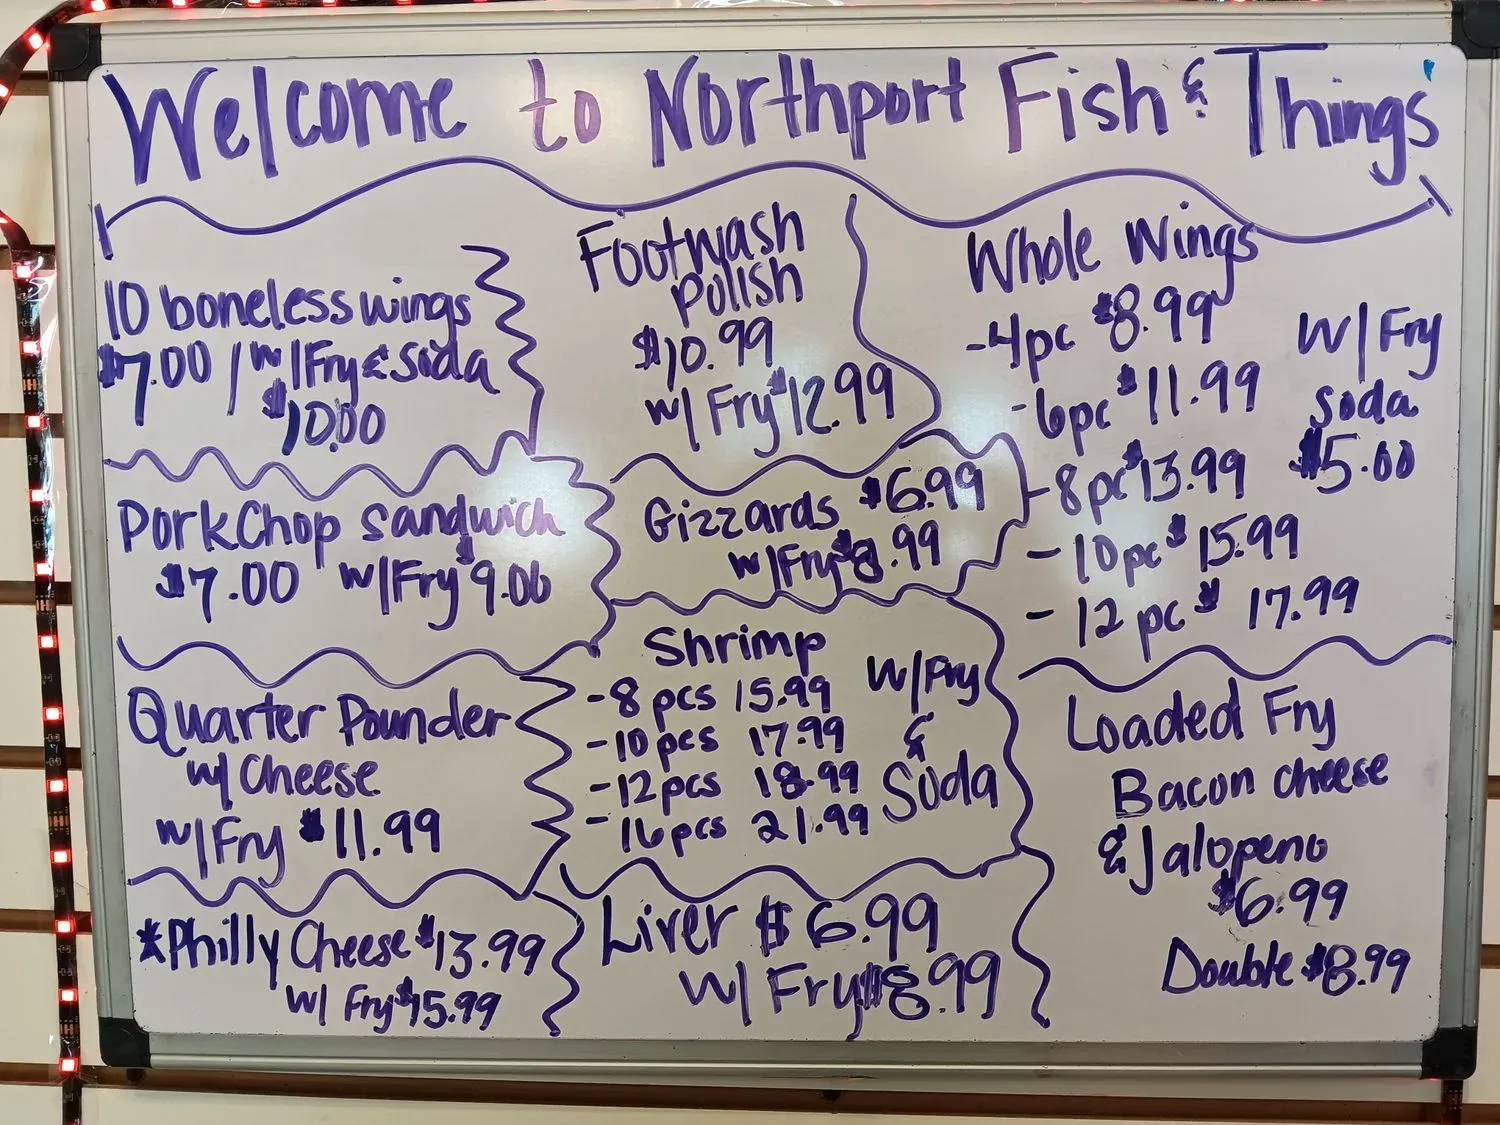 Welcome to Northport Fish & Things
10 boneless wings
$7.00 / w/Fry & Soda
$10.00
PorkChop Sandwich
$7.00 w/Fry $9.00
Quarter Pounder
w/ Cheese
w/Fry $11.99
*Philly Cheese $13.99
w/ Fry $15.99
Footwash
Polish
$10.99
w/ Fry $12.99
Gizzards $6.99
w/Fry $8.99
Shrimp
-8 pcs 15.99
-10 pcs 17.99
-12 pcs 18.99
-16 pcs 21.99
W/Fry
&
Soda
Liver $6.99
W/ Fry $8.99
Whole Wings
-4pc $8.99
-6pc $11.99
-8pc $13.99
-10pc $15.99
-12 pc $17.99
W/Fry
Soda
$5.00
Loaded Fry
Bacon cheese
& Jalapeno
$6.99
Double $8.99